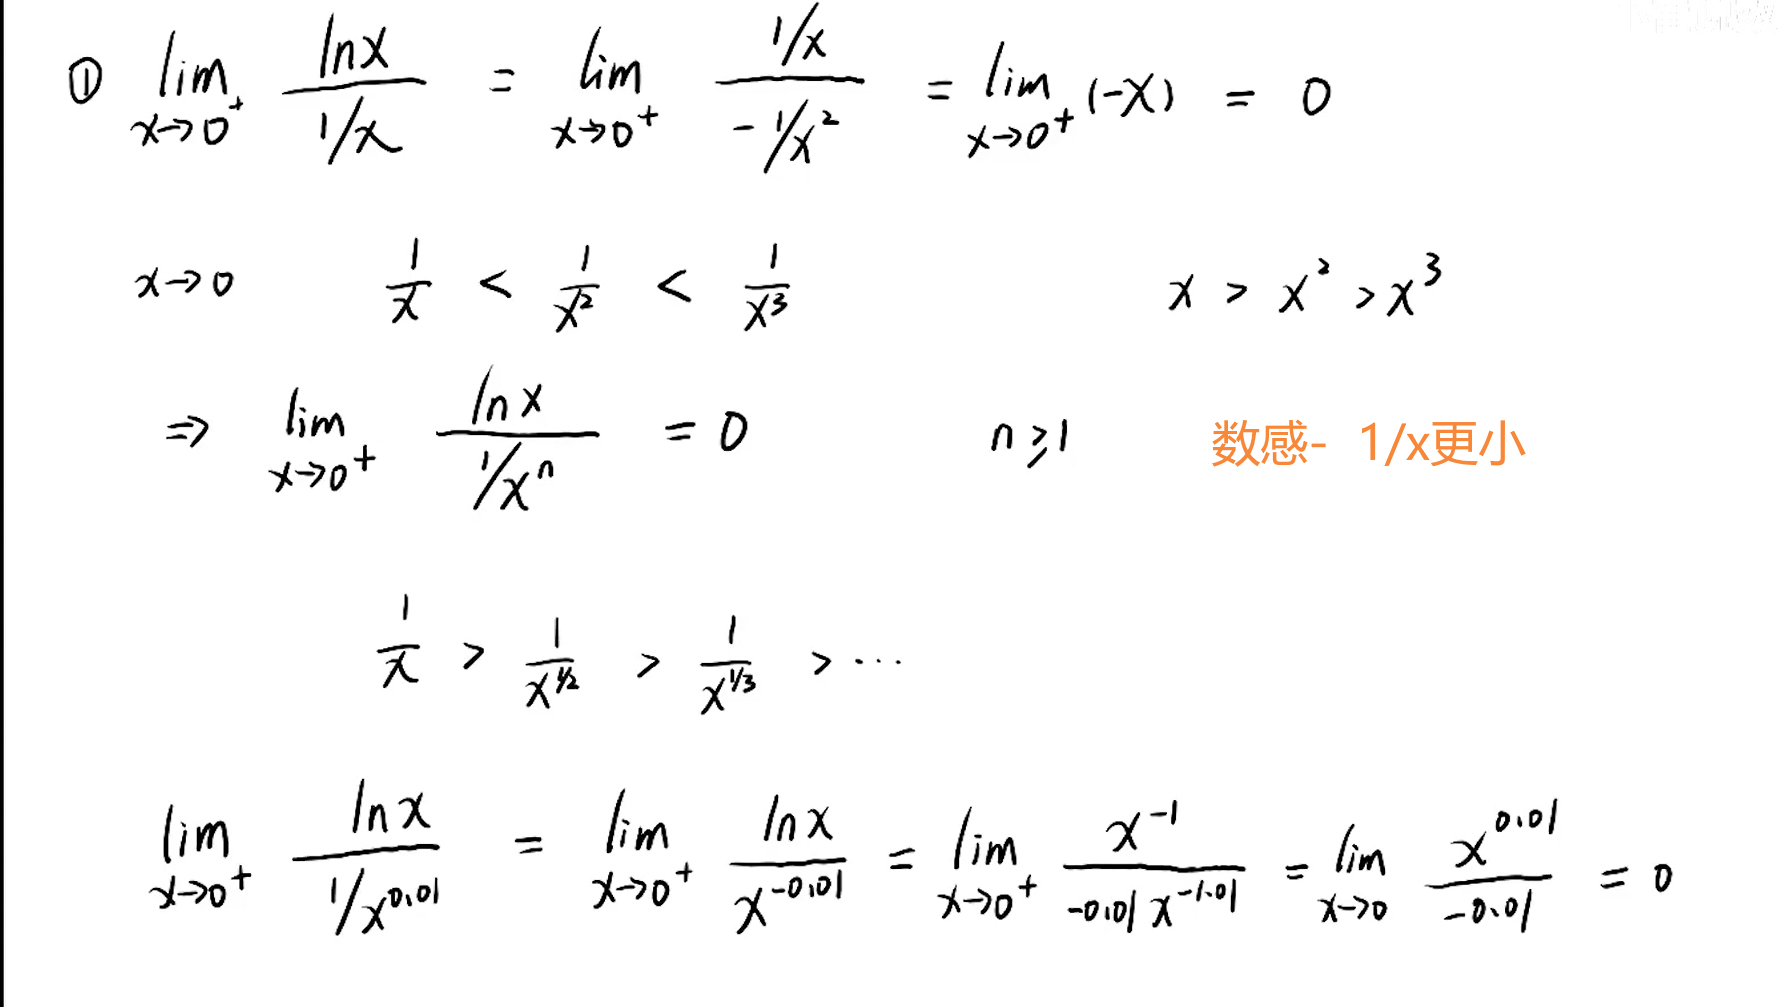 ① lim x→0⁺ lnx / (1/x) = lim x→0⁺ (1/x) / (-1/x²) = lim x→0⁺ (-x) = 0
x→0 1/x < 1/x² < 1/x³ x > x² > x³
⇒ lim x→0⁺ lnx / (1/xⁿ) = 0 n⩾1 数感- 1/x更小
1/x > 1/x^(1/2) > 1/x^(1/3) > ···
lim x→0⁺ lnx / (1/x^0.01) = lim x→0⁺ lnx / x^(-0.01) = lim x→0⁺ x^(-1) / (-0.01 x^(-1.01)) = lim x→0 x^0.01 / (-0.01) = 0